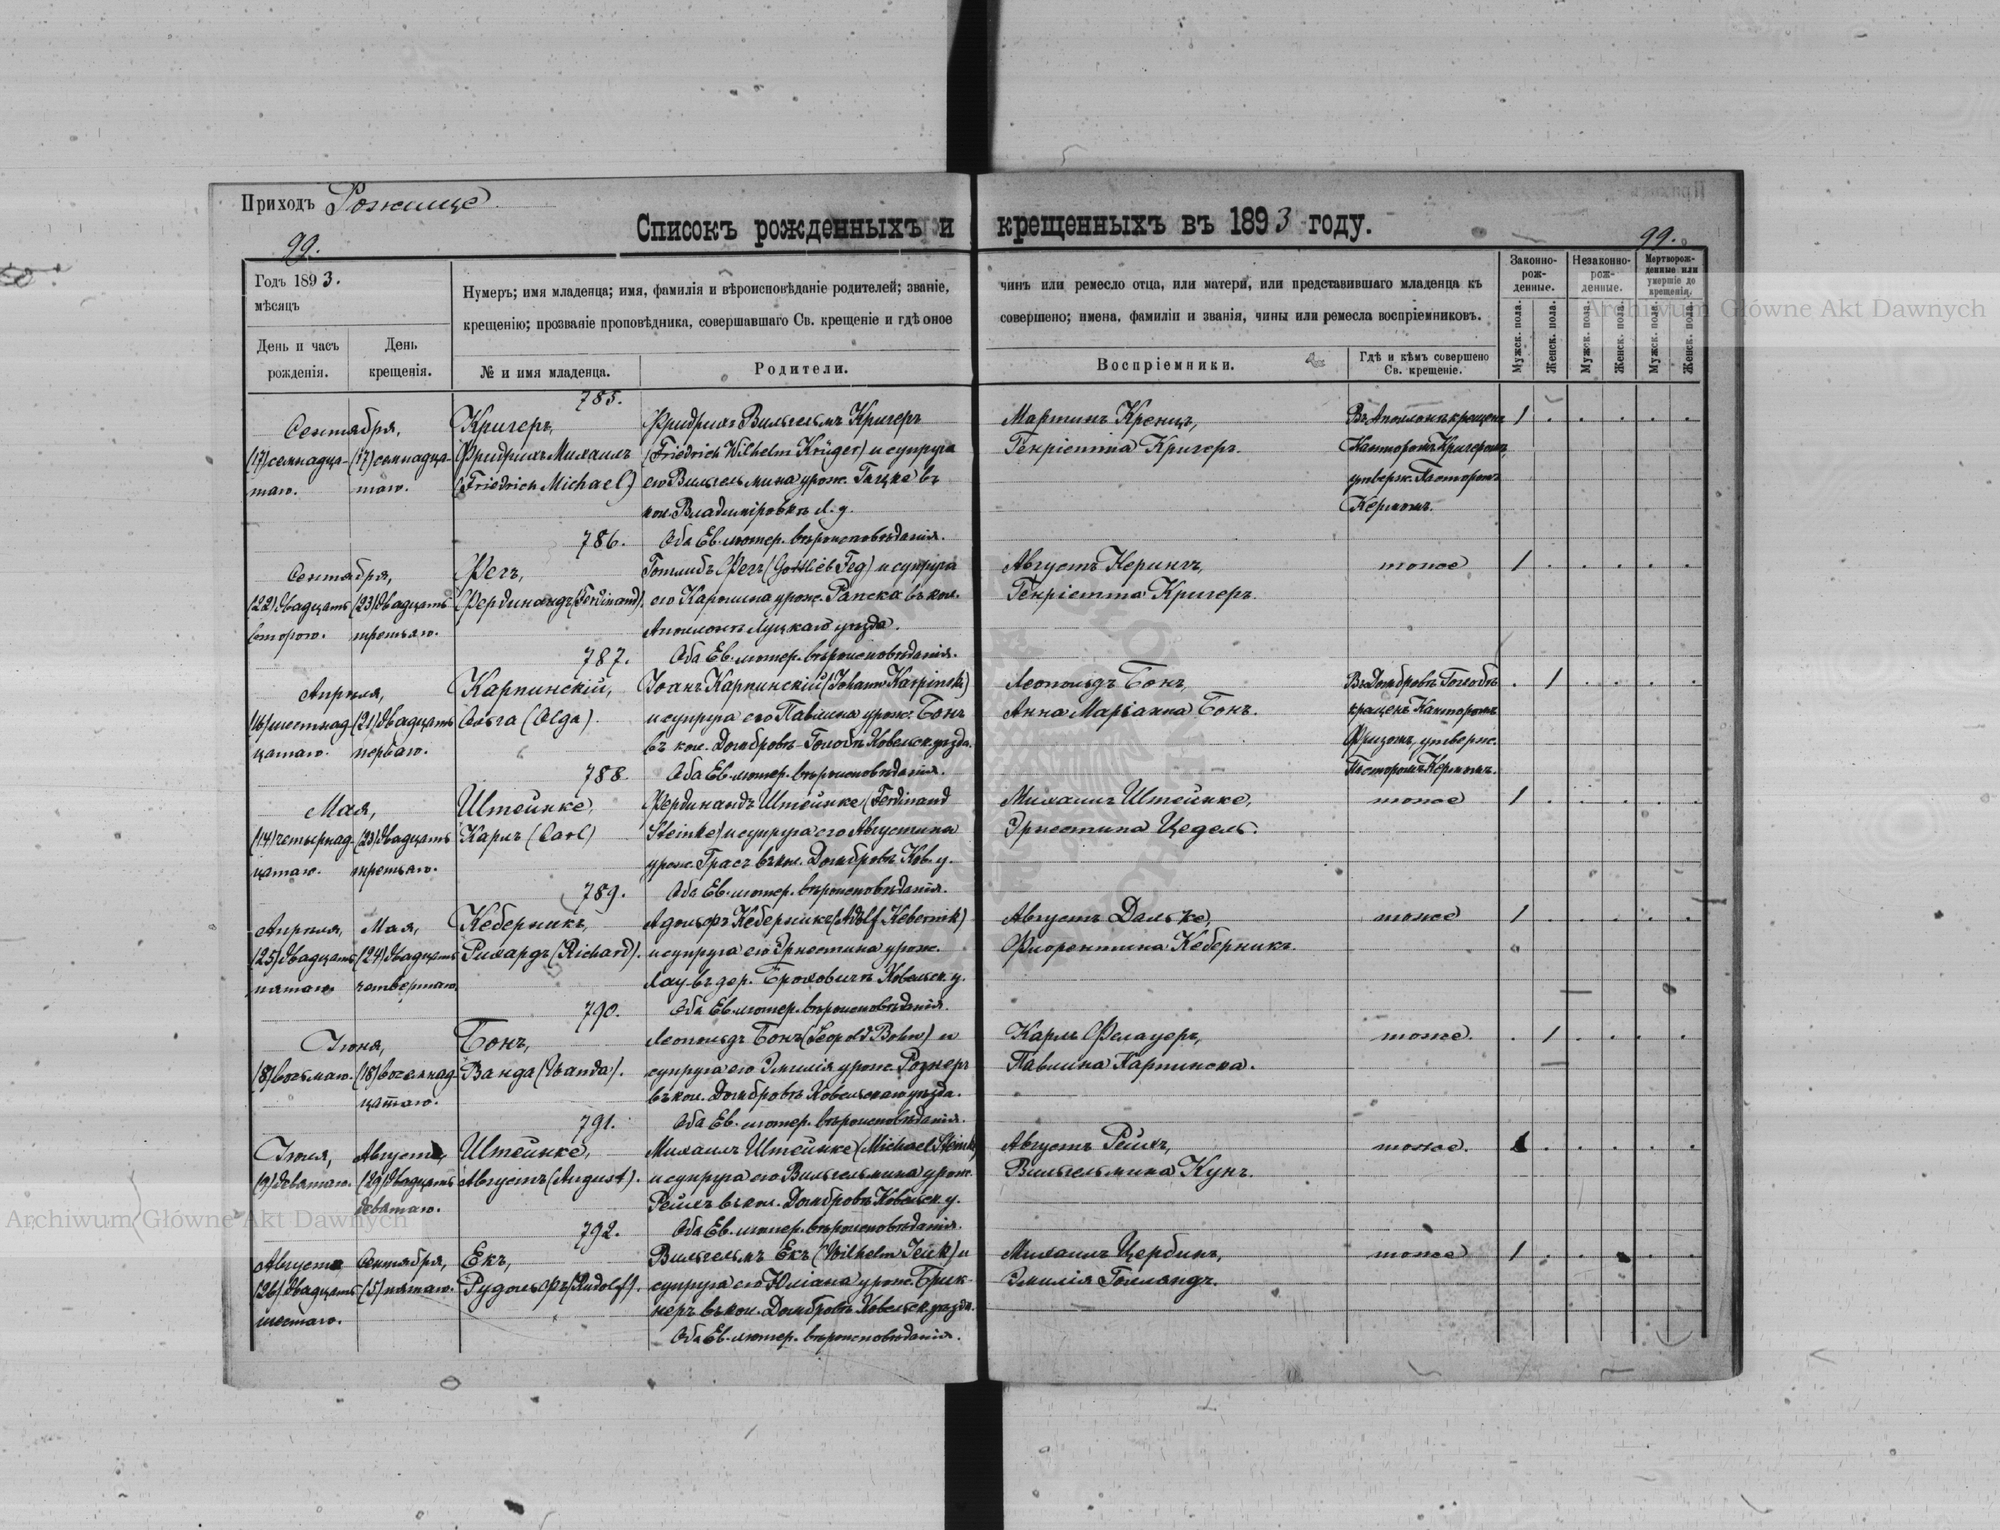 Приходъ Рожище
Списокъ рожденныхъ и крещенныхъ въ 1893 году.
99.
99.
Годъ 1893.
мѣсяцъ
День и часъ рожденія.
День крещенія.
Нумеръ; имя младенца; имя, фамилія и вѣроисповѣданіе родителей; званіе, чинъ или ремесло отца, или матери, или представившаго младенца къ
крещенію; прозваніе проповѣдника, совершавшаго Св. крещеніе и гдѣ оное совершено; имена, фамиліи и званія, чины или ремесла воспріемниковъ.
№ и имя младенца.
Родители.
Воспріемники.
Гдѣ и кѣмъ совершено Св. крещеніе.
Законно-рож-денные.
Незаконно-рож-денные.
Мертворож-денные или умершіе до крещенія.
Мужск. пола.
Женск. пола.
Мужск. пола.
Женск. пола.
Мужск. пола.
Женск. пола.
785.
Сентября,
(17) семнадца-
таго.
(17) семнадца-
таго.
Кригеръ,
Фридрихъ Михаилъ
(Friedrich Michael)
Фридрихъ Вильгельмъ Кригеръ
(Friedrich Wilhelm Krüger) и супруга
его Вильгельмина урож. Гацке въ
кол. Владиміровкѣ Л. у.
Оба Ев. лютер. вѣроисповѣданія.
Мартинъ Кренцъ,
Генріетта Кригеръ.
Въ Аполонкѣ крещенъ
Канторомъ Кригеромъ,
утверж. Пасторомъ
Кермомъ.
1
786.
Сентября,
(22) двадцать
второго.
(23) двадцать
третьяго.
Фегъ,
Фердинандъ (Ferdinand).
Готлибъ Фегъ (Gottlieb Feg) и супруга
его Каролина урож. Рапска въ кол.
Аполонкѣ Луцкаго уѣзда.
Оба Ев. лютер. вѣроисповѣданія.
Августъ Нерингъ,
Генріетта Кригеръ.
тоже
1
787.
Апрѣля,
(16) шестнад-
цатаго.
(21) двадцать
перваго.
Карпинскій,
Ольга (Olga).
Іоанъ Карпинскій (Johann Karpinski)
и супруга его Павлина урож. Бонъ
въ кол. Домбровѣ-Голобѣ Ковельск. уѣзда.
Оба Ев. лютер. вѣроисповѣданія.
Леопольдъ Бонъ,
Анна Маріанна Бонъ.
Въ Домбровѣ Голобѣ
крещенъ Канторомъ
Фризомъ, утверж.
Пасторомъ Кермомъ.
1
788.
Мая,
(14) четырнад-
цатаго.
(23) двадцать
третьяго.
Штейнке,
Карлъ (Carl)
Фердинандъ Штейнке (Ferdinand
Steinke) и супруга его Августина
урож. Грасъ въ кол. Домбровѣ Ков. у.
Оба Ев. лютер. вѣроисповѣданія.
Михаилъ Штейнке,
Эрнестина Цедель.
тоже
1
789.
Апрѣля,
(25) двадцать
пятаго.
Мая,
(24) двадцать
четвертаго.
Кеберникъ,
Рихардъ (Richard).
Адольфъ Кеберникъ (Adolf Kebernik)
и супруга его Эрнестина урож.
Лау въ дер. Броховичѣ Ковельск. у.
Оба Ев. лютер. вѣроисповѣданія.
Августъ Дальке,
Флорентина Кеберникъ.
тоже
1
790.
Іюня,
(8) восьмаго.
(18) восемнад-
цатаго.
Бонъ,
Ванда (Wanda).
Леопольдъ Бонъ (Leopold Bohn) и
супруга его Эмилія урож. Рознеръ
въ кол. Домбровѣ Ковельскаго уѣзда.
Оба Ев. лютер. вѣроисповѣданія.
Карлъ Фелауеръ,
Павлина Карпинска.
тоже.
1
791.
Іюля,
(9) девятаго.
Августа,
(29) двадцать
девятаго.
Штейнке,
Августъ (August).
Михаилъ Штейнке (Michael Steinke)
и супруга его Вильгельмина урож.
Рейхъ въ кол. Домбровѣ Ковельск. у.
Оба Ев. лютер. вѣроисповѣданія.
Августъ Рейхъ,
Вильгельмина Кунъ.
тоже.
1
792.
Августа
(26) двадцать
шестаго.
Сентября,
(5) пятаго.
Екъ,
Рудольфъ (Rudolf).
Вильгельмъ Екъ (Wilhelm Jeik) и
супруга его Юліана урож. Брик-
неръ въ кол. Домбровѣ Ковельск. уѣзда.
Оба Ев. лютер. вѣроисповѣданія.
Михаилъ Цербинъ,
Эмилія Голландъ.
тоже
1
Archiwum Główne Akt Dawnych
Archiwum Główne Akt Dawnych